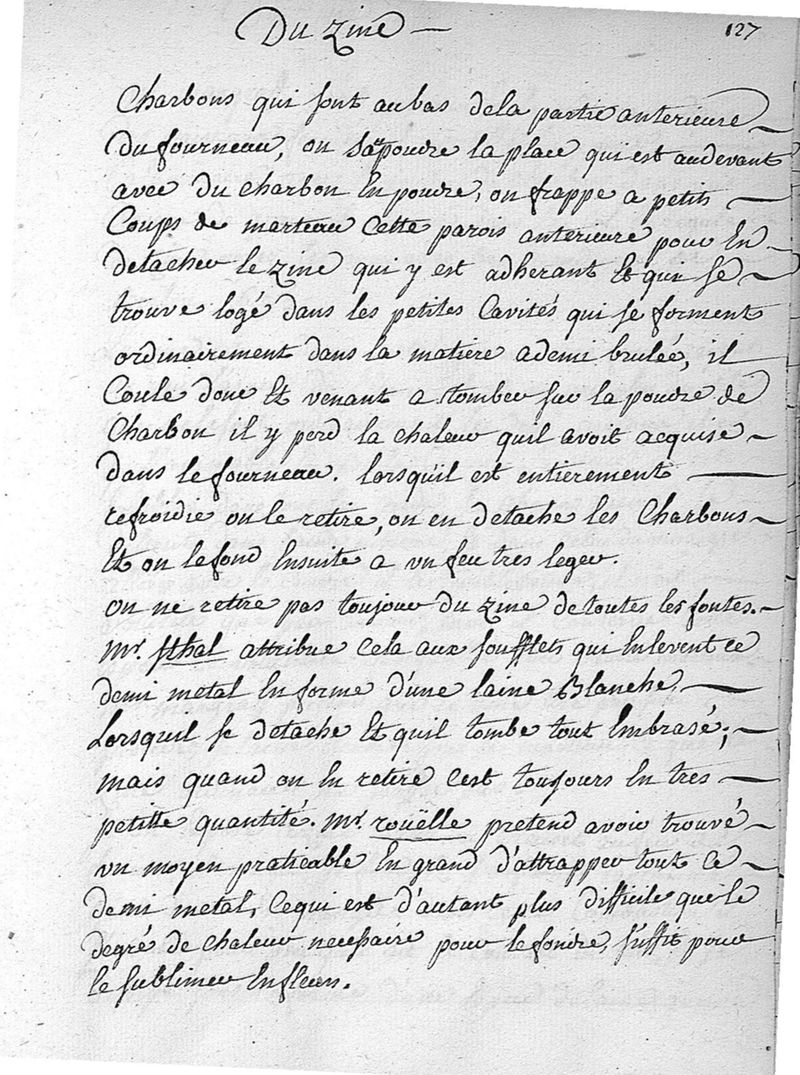 Du zinc —
127
Charbons qui sont au bas dela partie anterieure
Du fourneau, on sapoudre la place qui est audevant
avec du charbon En poudre, on frappe a petits
Coups de marteau Cette parois anterieure pour En
detacher le zinc qui y est adherant Et qui se
trouve logé dans les petites Cavités qui se forment
ordinairement dans la matiere ademi brulée, il
Coule donc Et venant a tomber sur la poudre de
Charbon il y perd la chaleur quil avoit acquise
dans le fourneau. lorsqu'il est entierement
refroidie on le retire, on en detache les Charbons
Et on le fond Ensuite a un feu tres leger.
on ne retire pas toujour du zinc de toutes les fontes.
Mr. Sthal attribue Cela aux soufflets qui Enlevent ce
demi metal En forme d'une laine Blanche,
Lorsquil se detache Et quil tombe tout Embrasé;
mais quand on En retire c'est toujours En tres
petitte quantité. Mr. rouëlle pretend avoir trouvé
un moyen praticable En grand d'attrapper tout Ce
demi metal, Cequi est d'autant plus difficile que le
degré de chaleur necessaire pour le fondre, suffit pour
le sublimer En fleurs.